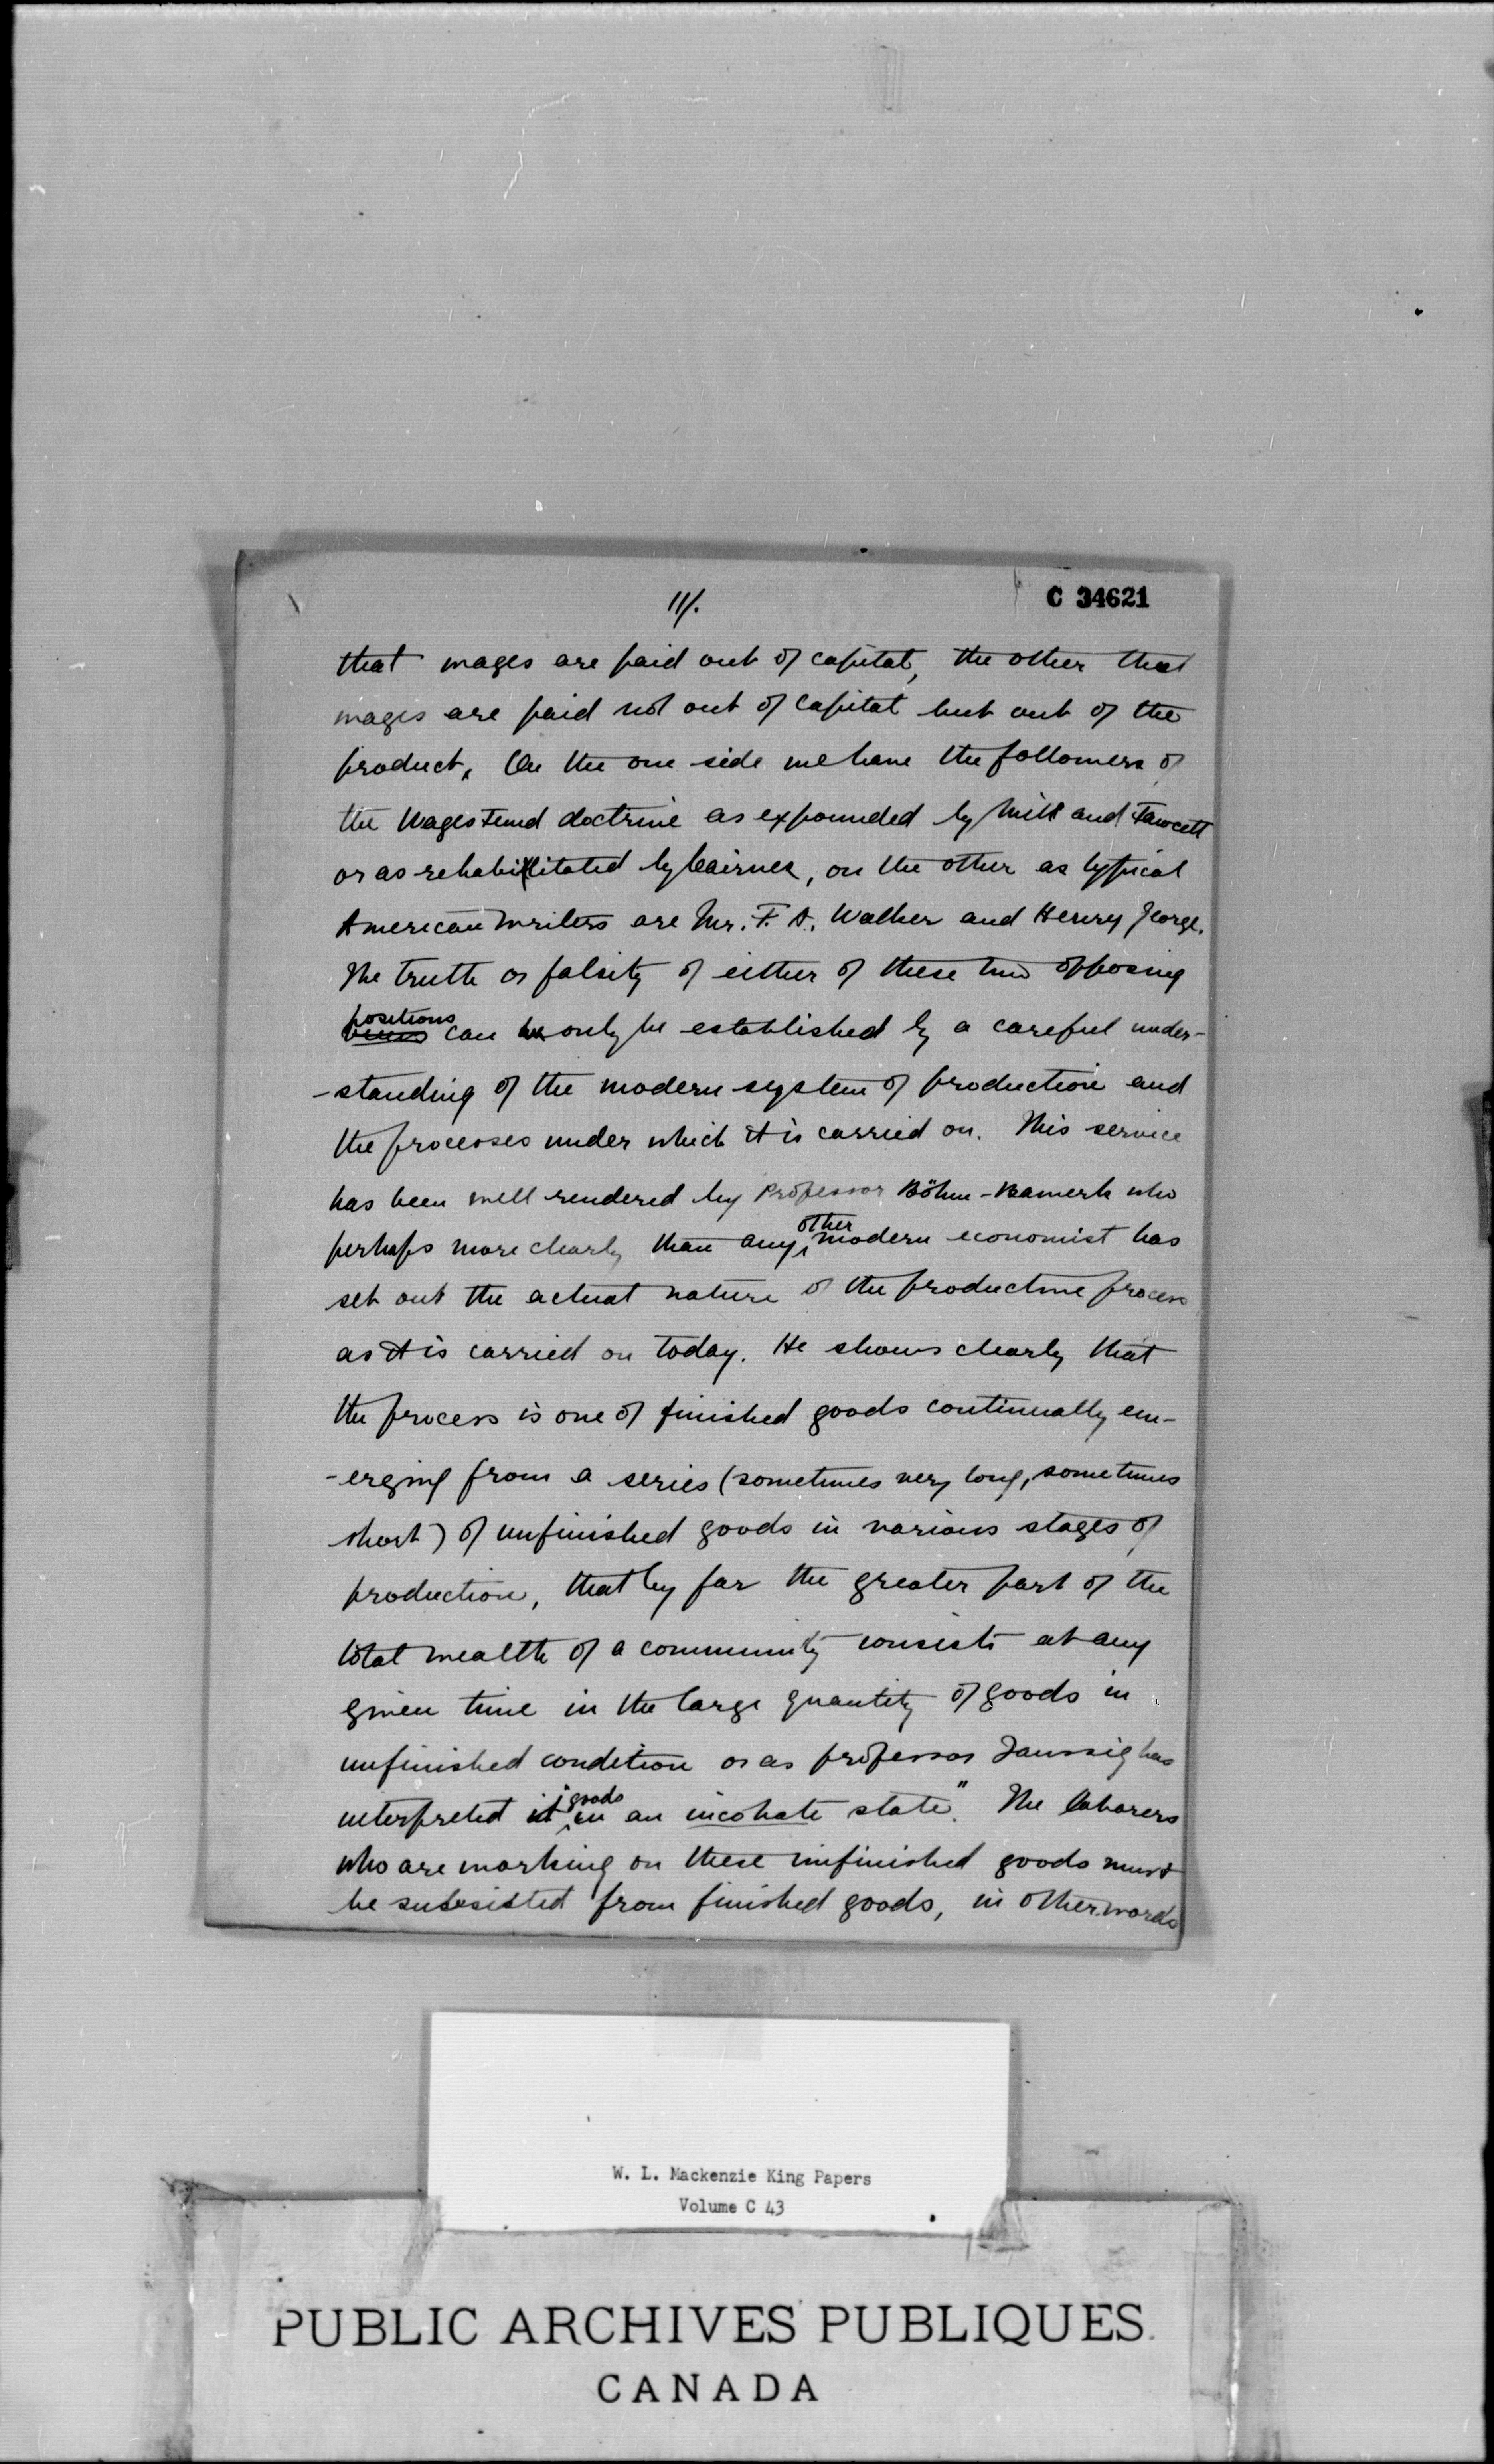 11/.
C 34621
that wages are paid out of capital, the other that
wages are paid not out of capital but out of the
product. On the one side we have the followers of
the Wages Fund doctrine as expounded by Mill and Fawcett
or as rehabilitated by Cairnes, on the other as typical
American writers are Mr. F. A. Walker and Henry George.
The truth or falsity of either of these two opposing
positions
views can be only be established by a careful under-
-standing of the modern system of production and
the processes under which it is carried on. This service
has been well rendered by Professor Böhm-Bawerk who
perhaps more clearly than any other modern economist has
set out the actual nature of the productive process
as it is carried on today. He shows clearly that
the process is one of finished goods continually em-
-erging from a series (sometimes very long, sometimes
short) of unfinished goods in various stages of
production, that by far the greater part of the
total wealth of a community consists at any
given time in the large quantity of goods in
unfinished condition or as professor Taussig has
interpreted it "goods in an incohate state". The laborers
who are working on these unfinished goods must
be subsisted from finished goods, in other words
W. L. Mackenzie King Papers
Volume C 43
PUBLIC ARCHIVES PUBLIQUES
CANADA